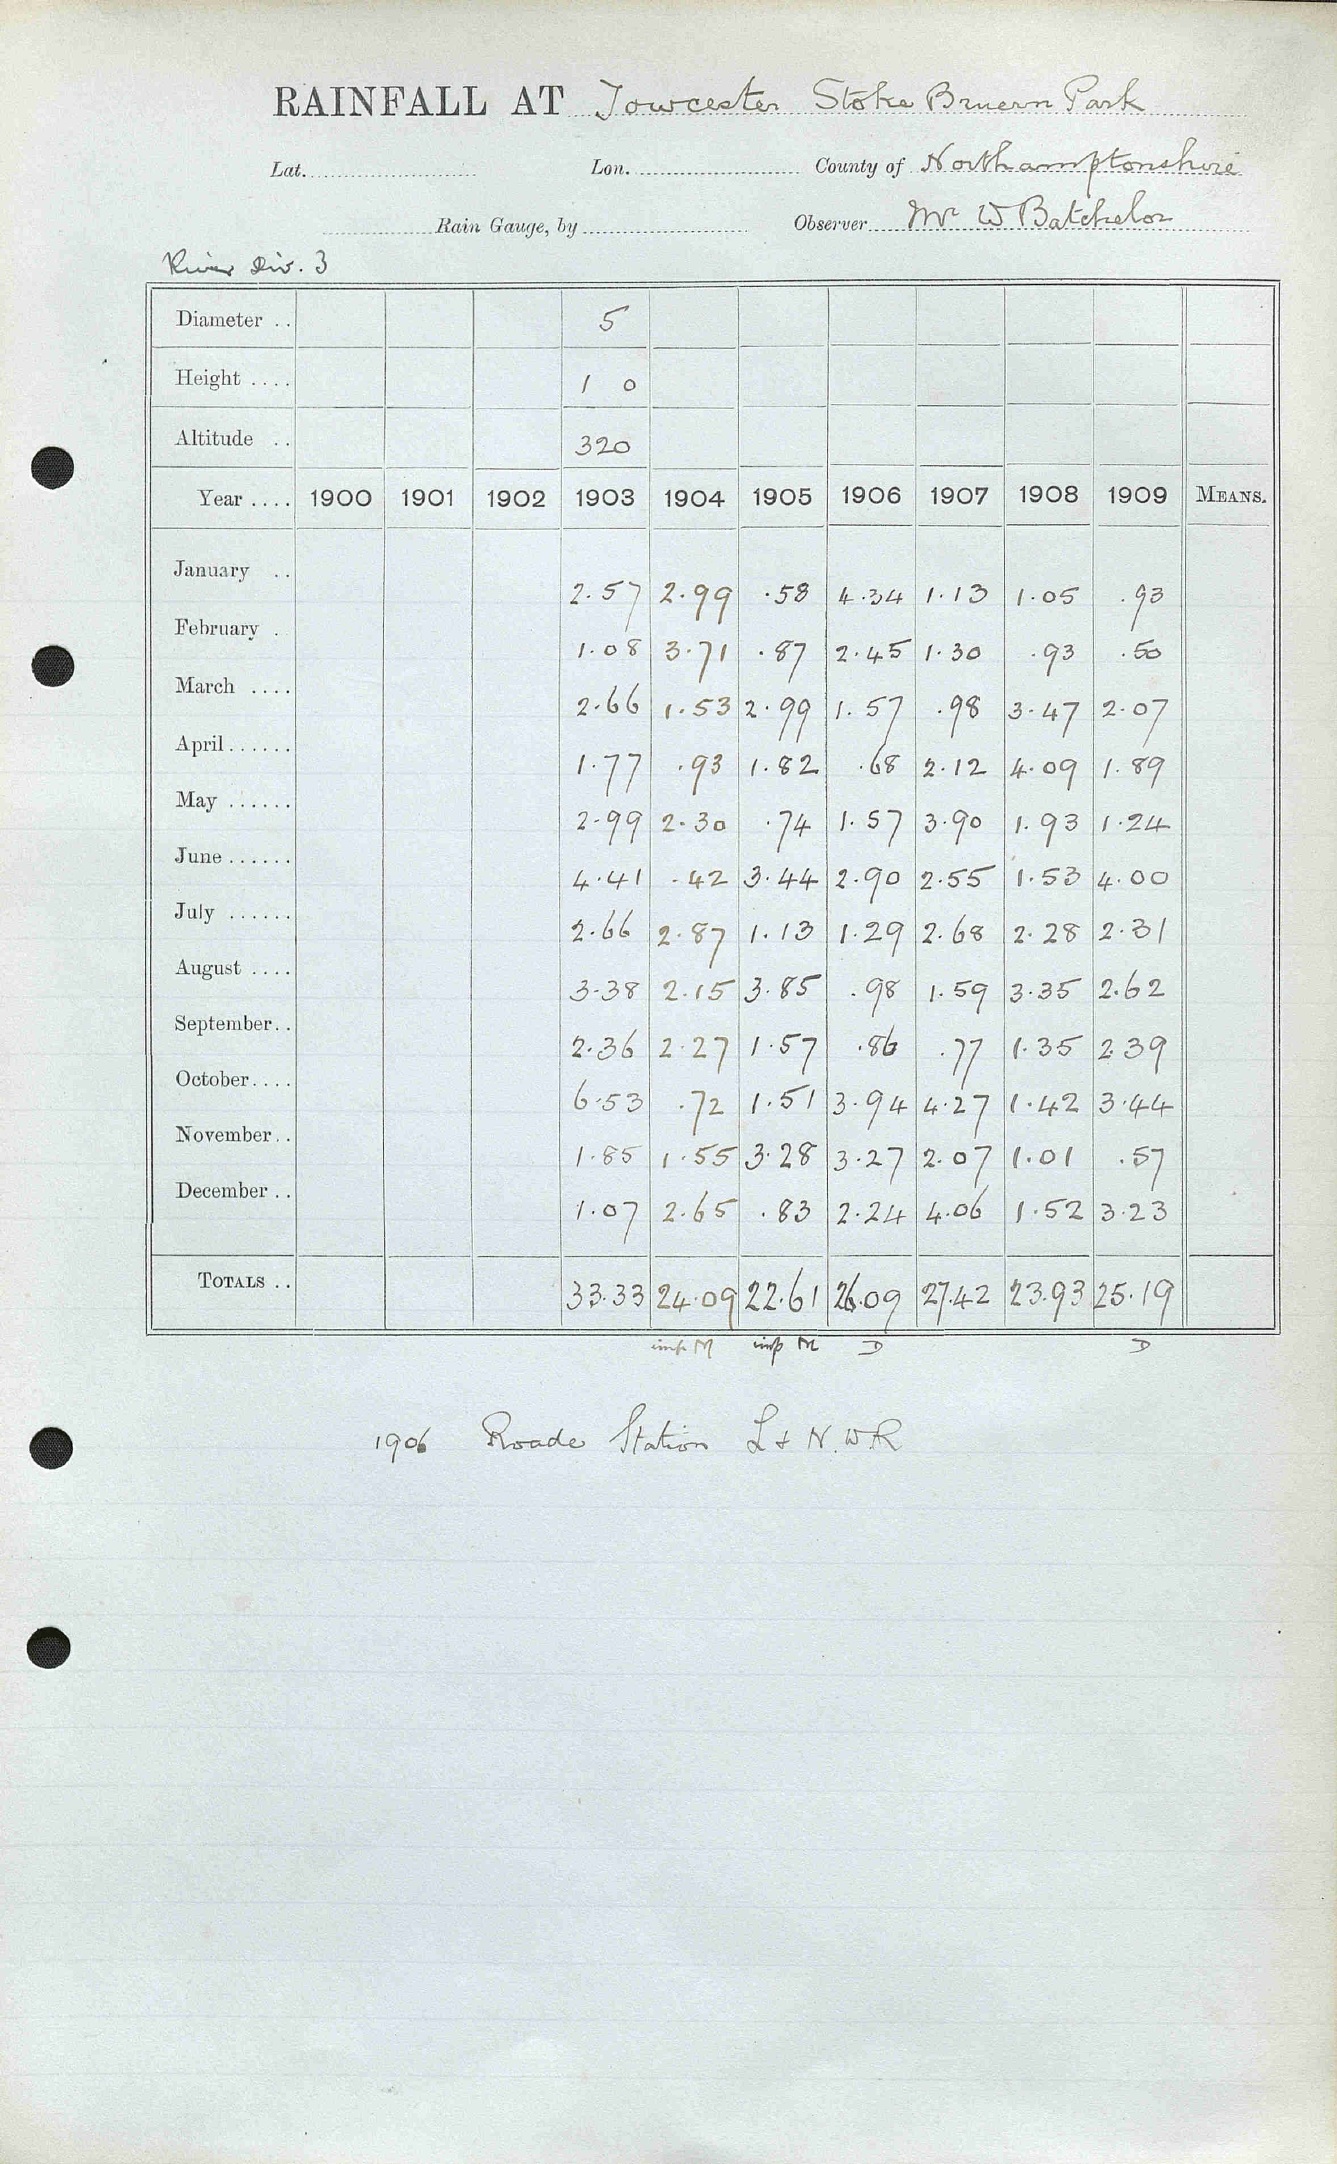 RAINFALL AT Towcester Stoke Bruern Park
Lat. Lon. County of Northamptonshire
Rain Gauge, by Observer Mr W Batchelor
River Div. 3
Diameter .. 5
Height .... 1 0
Altitude .. 320
Year .... 1900 1901 1902 1903 1904 1905 1906 1907 1908 1909 MEANS.
January .. 2.57 2.99 .58 4.34 1.13 1.05 .93
February . 1.08 3.71 .87 2.45 1.30 .93 .50
March .... 2.66 1.53 2.99 1.57 .98 3.47 2.07
April ...... 1.77 .93 1.82 .68 2.12 4.09 1.89
May ...... 2.99 2.30 .74 1.57 3.90 1.93 1.24
June ...... 4.41 .42 3.44 2.90 2.55 1.53 4.00
July ...... 2.66 2.87 1.13 1.29 2.68 2.28 2.31
August .... 3.38 2.15 3.85 .98 1.59 3.35 2.62
September.. 2.36 2.27 1.57 .86 .77 1.35 2.39
October.... 6.53 .72 1.51 3.94 4.27 1.42 3.44
November.. 1.85 1.55 3.28 3.27 2.07 1.01 .57
December .. 1.07 2.65 .83 2.24 4.06 1.52 3.23
TOTALS .. 33.33 24.09 22.61 26.09 27.42 23.93 25.19
imp M imp M D D
1906 Roade Station L & N.W.R